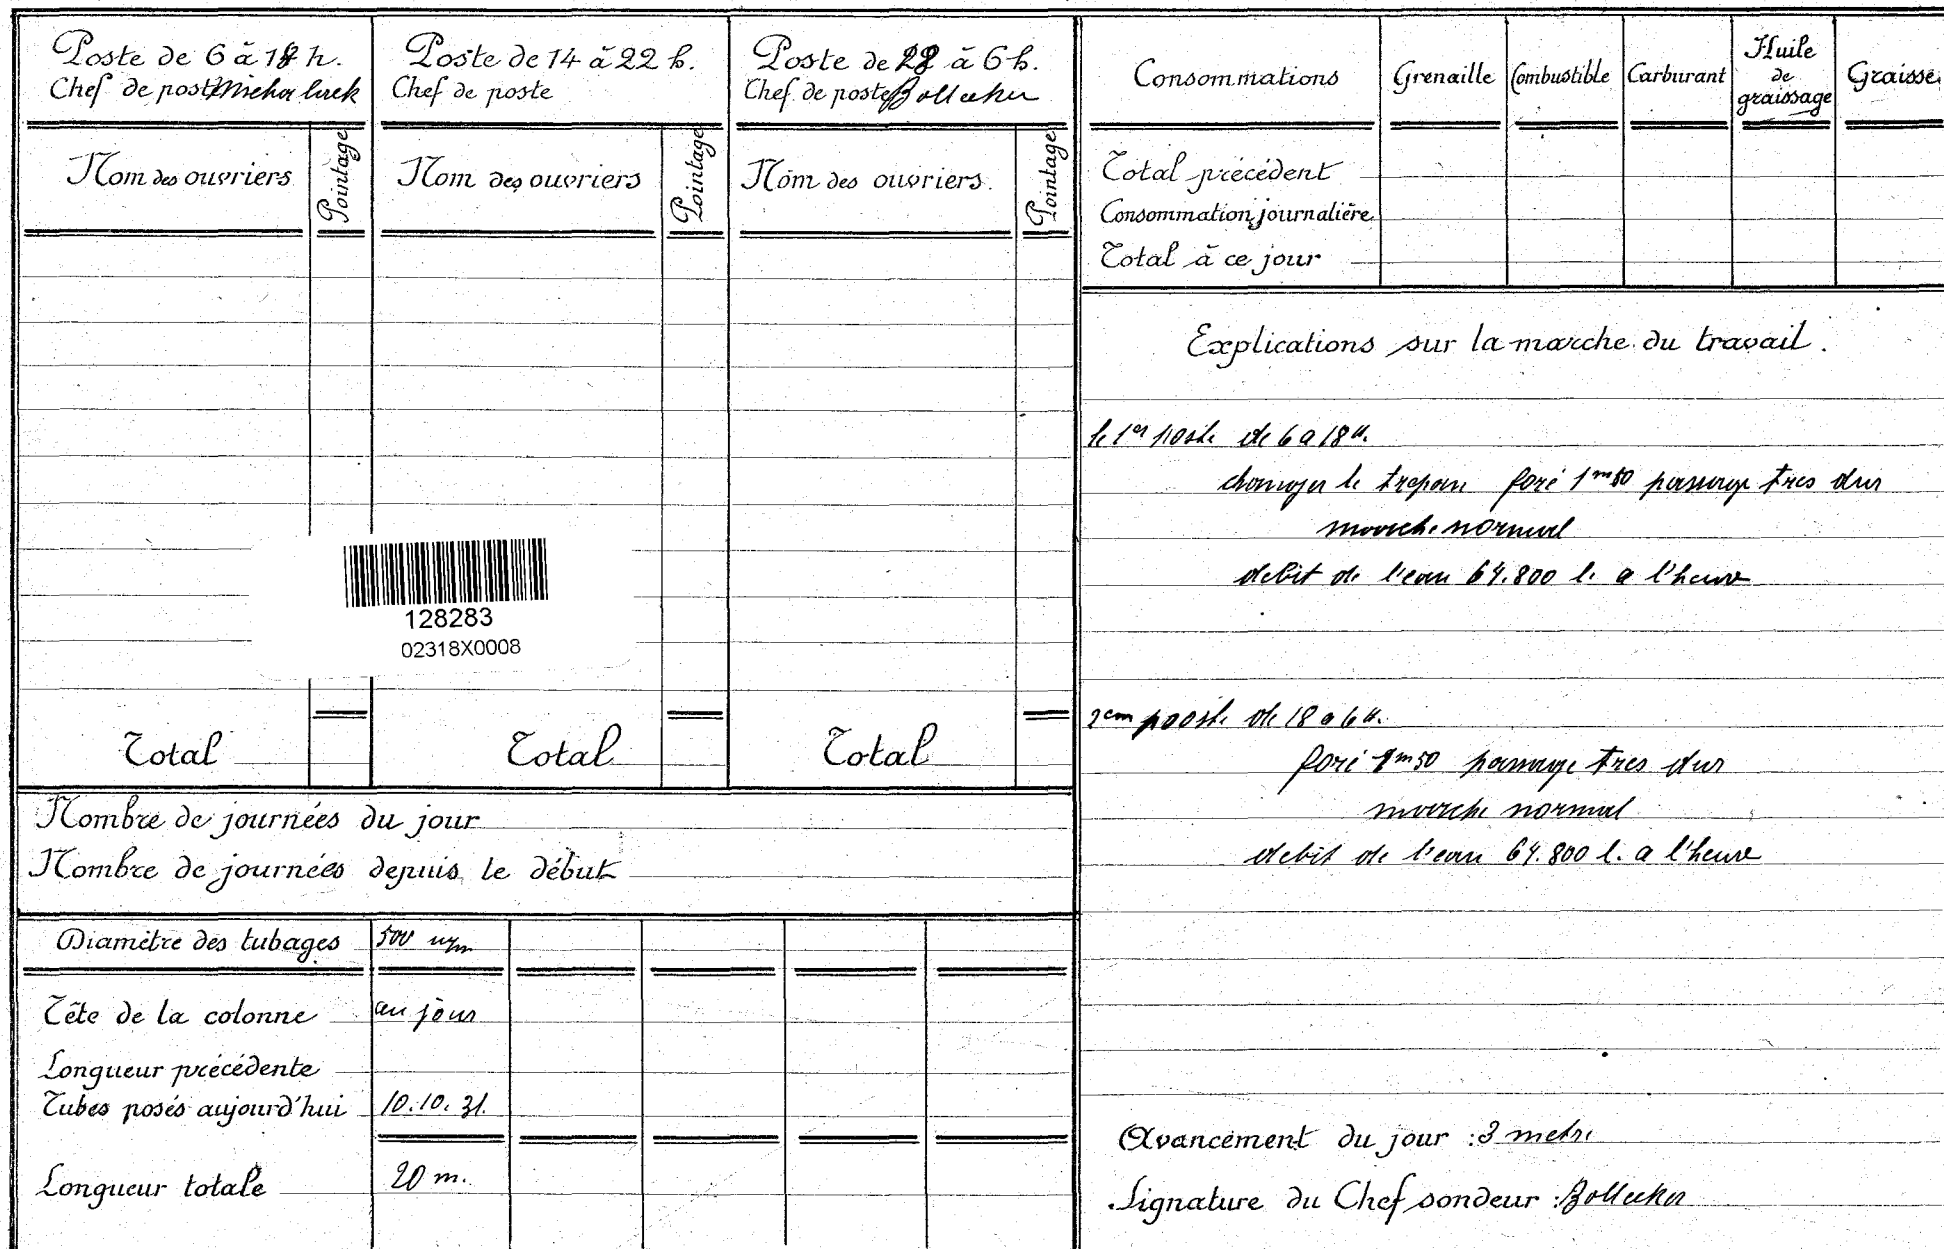 Poste de 6 à 18 h.
Chef de poste
Nom des ouvriers
Pointage
Total
Poste de 14 à 22 h.
Chef de poste
Nom des ouvriers
Pointage
Total
Poste de à 6 h.
Chef de poste Bollecker
Nom des ouvriers.
Pointage
Total
128283
02318X0008
Nombre de journées du jour
Nombre de journées depuis le début
Diamètre des tubages 500 m/m
Tête de la colonne au jour
Longueur précédente
Tubes posés aujourd'hui 10.10.31.
Longueur totale 20 m.
Consommations Grenaille Combustible Carburant Huile de graissage Graisse
Total précédent
Consommation journalière
Total à ce jour
Explications sur la marche du travail.
le 1er poste de 6 a 18 H.
changer le trepan foré 1m50 passage tres dur
marche normal
debit de l'eau 64.800 l. a l'heure
2em poste de 18 a 6 H.
foré 1m50 passage tres dur
marche normal
debit de l'eau 64.800 l. a l'heure
Avancement du jour : 3 metre
Signature du Chef sondeur : Bollecker